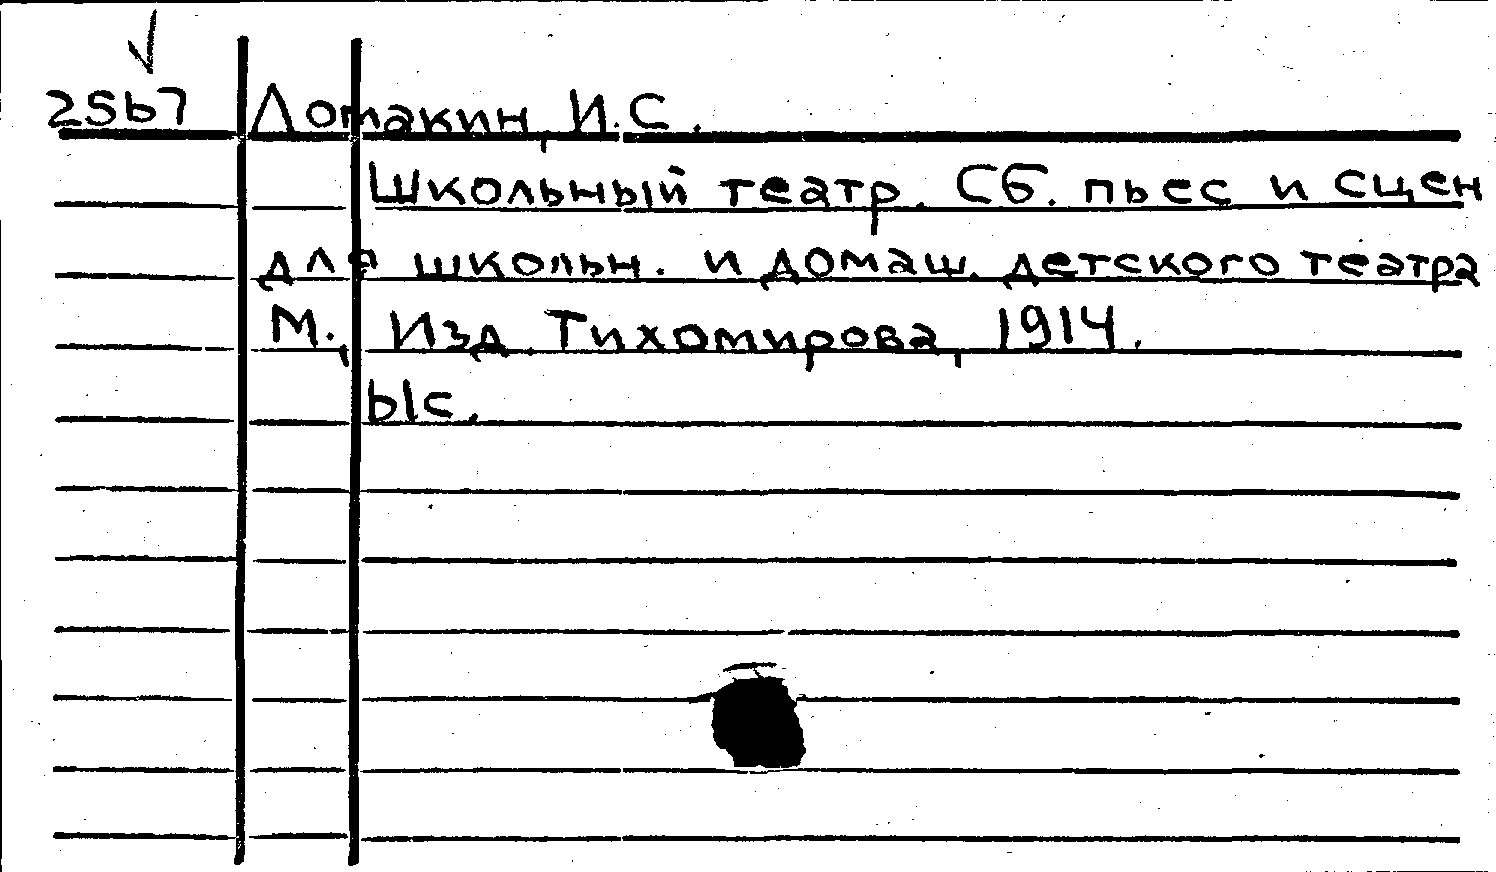 2567 Ломакин, И.С.
Школьный театр. Сб. пьес и сцен
для школьн. и домаш. детского театра
М., Изд. Тихомирова, 1914.
61с.